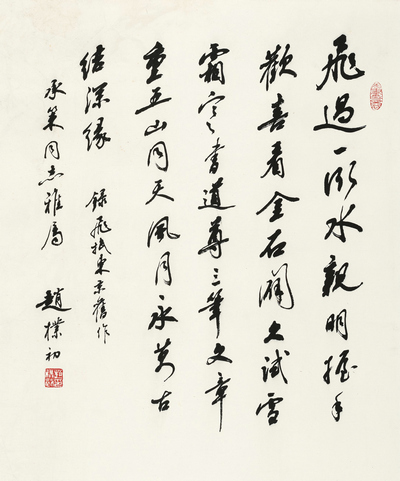 飛過一衣水親朋握手
歡喜看金石久試雪
霜寒書道尊三筆文章
重五山同天風月永萬古
結深緣 錄飛抵東京舊作
承同志雅屬 趙樸初